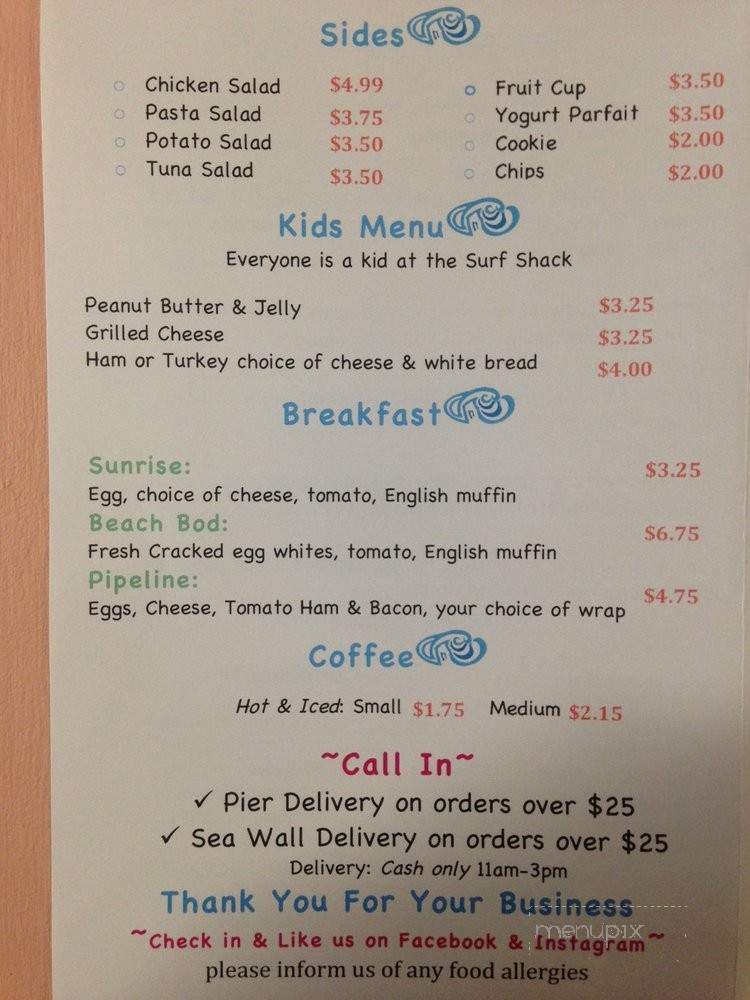 Sides
Chicken Salad $4.99 Fruit Cup $3.50
Pasta Salad $3.75 Yogurt Parfait $3.50
Potato Salad $3.50 Cookie $2.00
Tuna Salad $3.50 Chips $2.00
Kids Menu
Everyone is a kid at the Surf Shack
Peanut Butter & Jelly $3.25
Grilled Cheese $3.25
Ham or Turkey choice of cheese & white bread $4.00
Breakfast
Sunrise: $3.25
Egg, choice of cheese, tomato, English muffin
Beach Bod: $6.75
Fresh Cracked egg whites, tomato, English muffin
Pipeline: $4.75
Eggs, Cheese, Tomato Ham & Bacon, your choice of wrap
Coffee
Hot & Iced: Small $1.75 Medium $2.15
~Call In~
✓ Pier Delivery on orders over $25
✓ Sea Wall Delivery on orders over $25
Delivery: Cash only 11am-3pm
Thank You For Your Business
menupix
~Check in & Like us on Facebook & Instagram~
please inform us of any food allergies